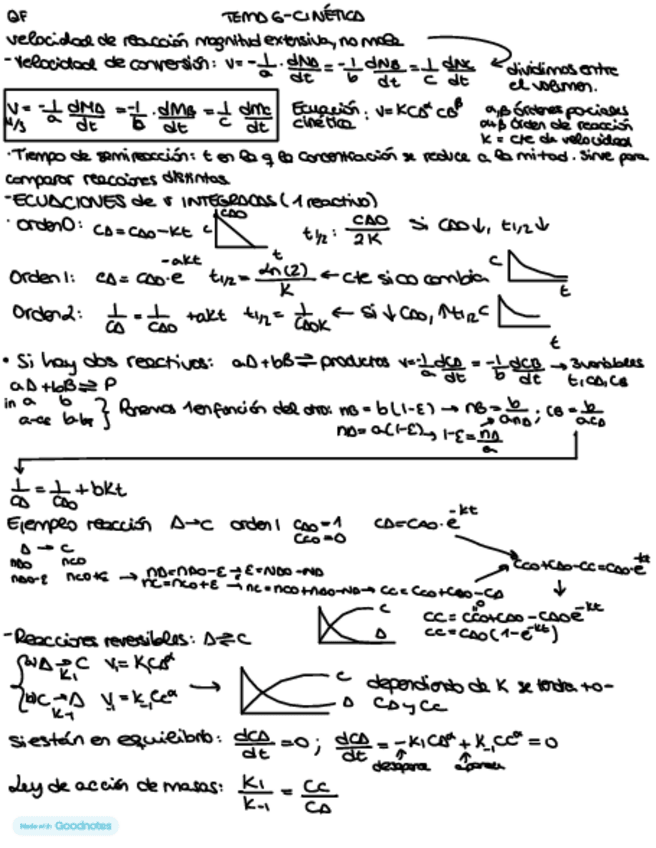 QF TEMA 6-CINÉTICA
velocidad de reacción magnitud extensiva, no masa
-Velocidad de conversión: v = -1/a · dNA/dt = -1/b · dNB/dt = 1/c dNC/dt dividimos entre el volumen.
V = -1/a dMA/dt = -1/b · dMB/dt = 1/c dMC/dt M/s Ecuación cinética: v = KCA^α CB^β α,β órdenes parciales
α+β orden de reacción
K = cte de velocidad
· Tiempo de semireacción: t en la q la concentración se reduce a la mitad. Sirve para
comparar reacciones distintas
-ECUACIONES de v INTEGRADAS (1 reactivo)
· orden 0: CA = CA0 - Kt C CA0 t t1/2: CA0/2K si CA0↓, t1/2↓
Orden 1: CA = CA0·e^-akt t1/2 = Ln(2)/K ← cte si co cambia C t
Orden 2: 1/CA = 1/CA0 + akt t1/2 = 1/CA0K ← Si ↓CA0, ↑t1/2 C t
• Si hay dos reactivos: aA+bB ⇌ productos v = -1/a dCA/dt = -1/b dCB/dt → 3 variables
t, CA, CB
aA+bB ⇌ P
in a b
a-aε b-bε } Ponemos 1 en función del otro: nB = b(1-ε) → nB = b/a nA; CB = b/a CA
nA = a(1-ε) → 1-ε = nA/a
1/CA = 1/CA0 + bKt
Ejemplo reacción A→C orden 1 CA0=1 CC0=0 CA = CA0·e^-kt
A → C
nA0 nC0
nA0-ε nC0+ε → nA=nA0-ε → ε=NA0-NA
nC=nC0+ε → nC=nC0+nA0-NA → CC=CC0+CA0-CA
CC0+CA0-CC=CA0·e^-kt
C A
CC = CC0+CA0-CA0e^-kt
0
CC = CA0(1-e^-kt)
-Reacciones reversibles: A⇌C
A → C K1 V1=K1CA^α
C → A K-1 V-1=K-1CC^α → C A dependiendo de K se tendra +o-
CA y CC
si están en equilibrio: dCA/dt = 0; dCA/dt = -K1CA^α + K-1CC^α = 0
desapare aparece
Ley de acción de masas: K1/K-1 = CC/CA
Made with Goodnotes